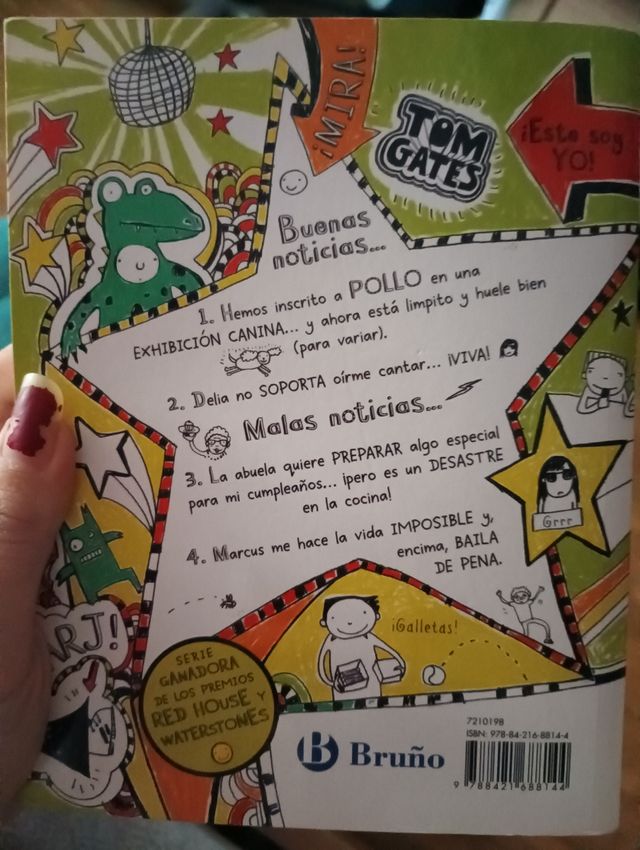 ¡MIRA!
TOM
GATES
¡Este soy
YO!
Buenas
noticias...
1. Hemos inscrito a POLLO en una
EXHIBICIÓN CANINA... y ahora está limpito y huele bien
(para variar).
2. Delia no SOPORTA oírme cantar... ¡VIVA!
Malas noticias...
3. La abuela quiere PREPARAR algo especial
para mi cumpleaños... ¡pero es un DESASTRE
en la cocina!
Grrr
4. Marcus me hace la vida IMPOSIBLE y,
encima, BAILA
DE PENA.
¡Galletas!
ARJ!
SERIE
GANADORA
DE LOS PREMIOS
RED HOUSE Y
WATERSTONES
B Bruño
7210198
ISBN: 978-84-216-8814-4
9 788421 688144